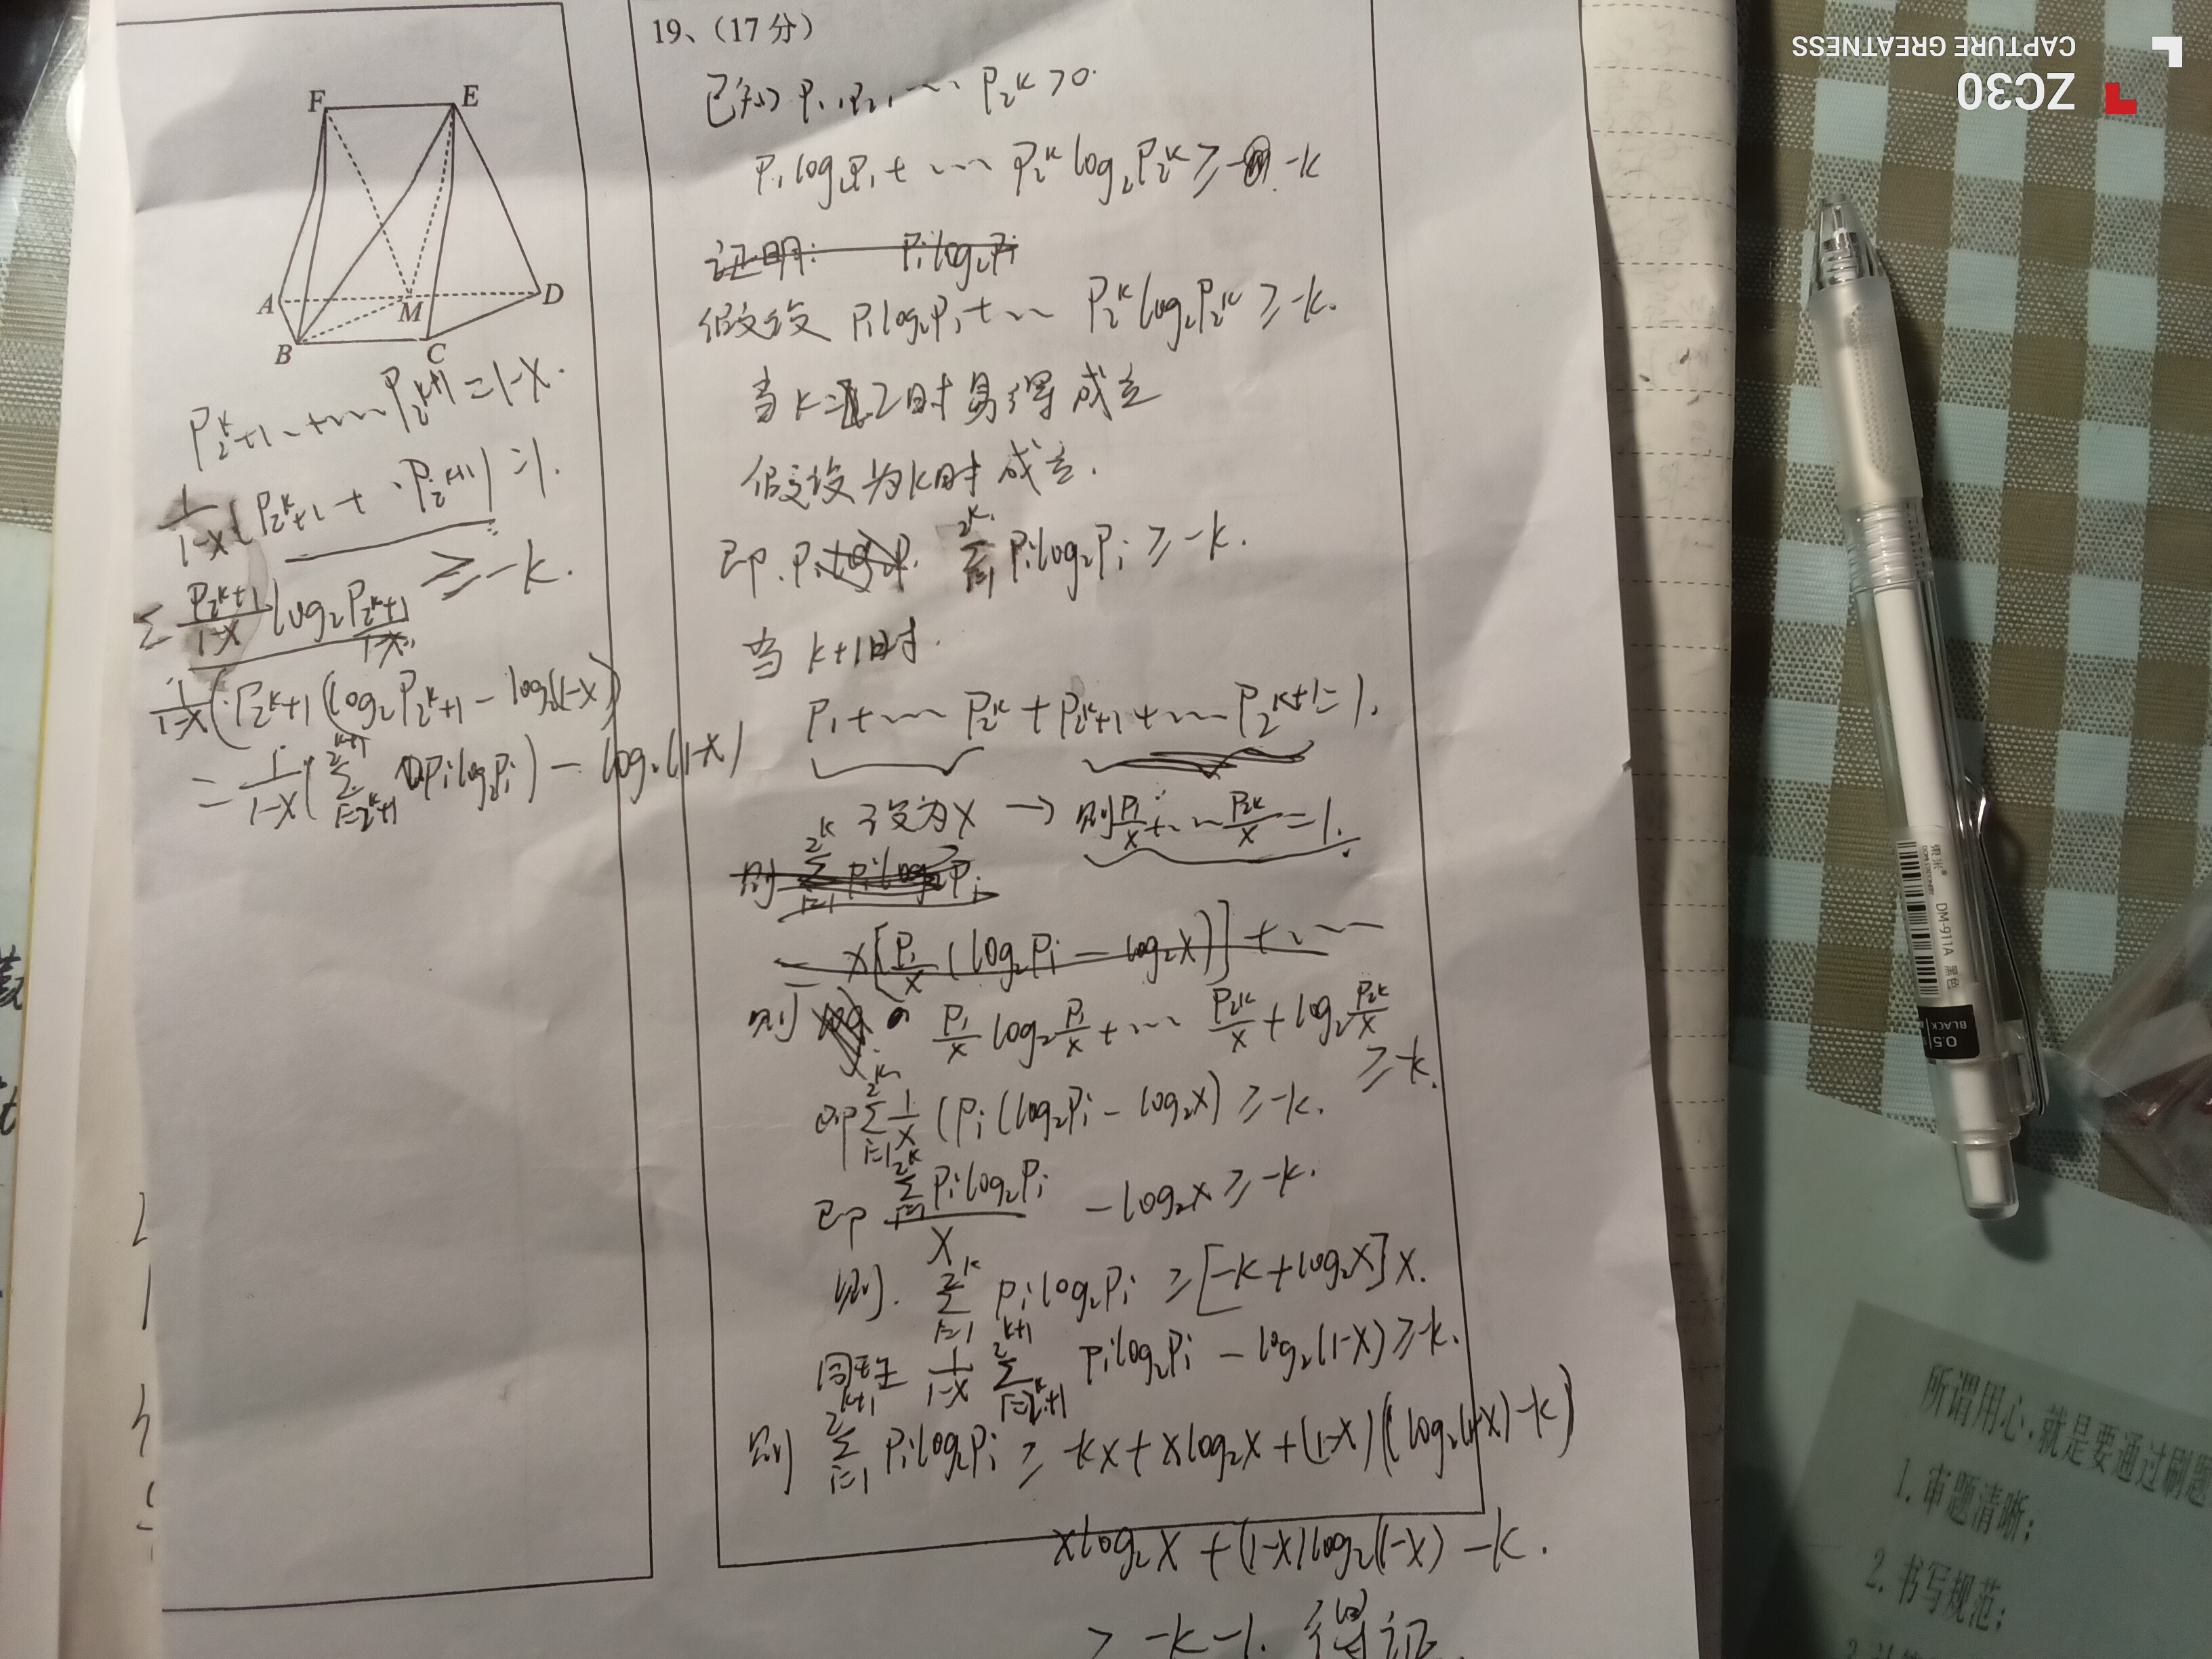 F E
A M D
B C
P_{2^k+1}+……P_{2^{k+1}}=1-x.
\frac{1}{1-x}(P_{2^k+1}+·P_{2^{k+1}})=1.
≥-k.
Σ\frac{P_{2^k+1}}{1-x}log_2\frac{P_{2^k+1}}{1-x}
\frac{1}{1-x}(P_{2^k+1}(log_2P_{2^k+1}-log_2(1-x)
=\frac{1}{1-x}(\sum_{i=2^k+1}^{2^{k+1}}P_ilog_2P_i)-log_2(1-x)
19、(17分)
已知P_1,P_2,……P_{2^k}>0.
P_1log_2P_1+……P_{2^k}log_2P_{2^k}≥-k
证明: P_ilog_2P_i
假设 P_1log_2P_1+……P_{2^k}log_2P_{2^k}≥-k.
当k=2时易得成立
假设为k时成立.
即. \sum_{i=1}^{2^k}P_ilog_2P_i≥-k.
当k+1时.
P_1+……P_{2^k}+P_{2^k+1}+……P_{2^{k+1}}=1.
设为x→则\frac{P_1}{x}+……\frac{P_{2^k}}{x}=1.
则\sum_{i=1}^{2^k}P_ilog_2P_i
x[\frac{P_i}{x}(log_2P_i-log_2x)]+……
则 \frac{P_1}{x}log_2\frac{P_1}{x}+……\frac{P_{2^k}}{x}+log_2\frac{P_{2^k}}{x}
≥-k.
即\sum_{i=1}^{2^k}\frac{1}{x}(P_i(log_2P_i-log_2x)≥-k.
即\frac{\sum_{i=1}^{2^k}P_ilog_2P_i}{x}-log_2x≥-k.
则. \sum_{i=1}^{2^k}P_ilog_2P_i≥[-k+log_2x]x.
同理\frac{1}{1-x}\sum_{i=2^k+1}^{2^{k+1}}P_ilog_2P_i-log_2(1-x)≥-k.
则\sum_{i=1}^{2^{k+1}}P_ilog_2P_i≥-kx+xlog_2x+(1-x)(log_2(1-x)-k)
xlog_2x+(1-x)log_2(1-x)-k.
>-k-1. 得证
CAPTURE GREATNESS
ZC30
東米®
DM-911A 黑色
0.5
BLACK
所谓用心,就是要通过刷题
1.审题清晰;
2.书写规范;